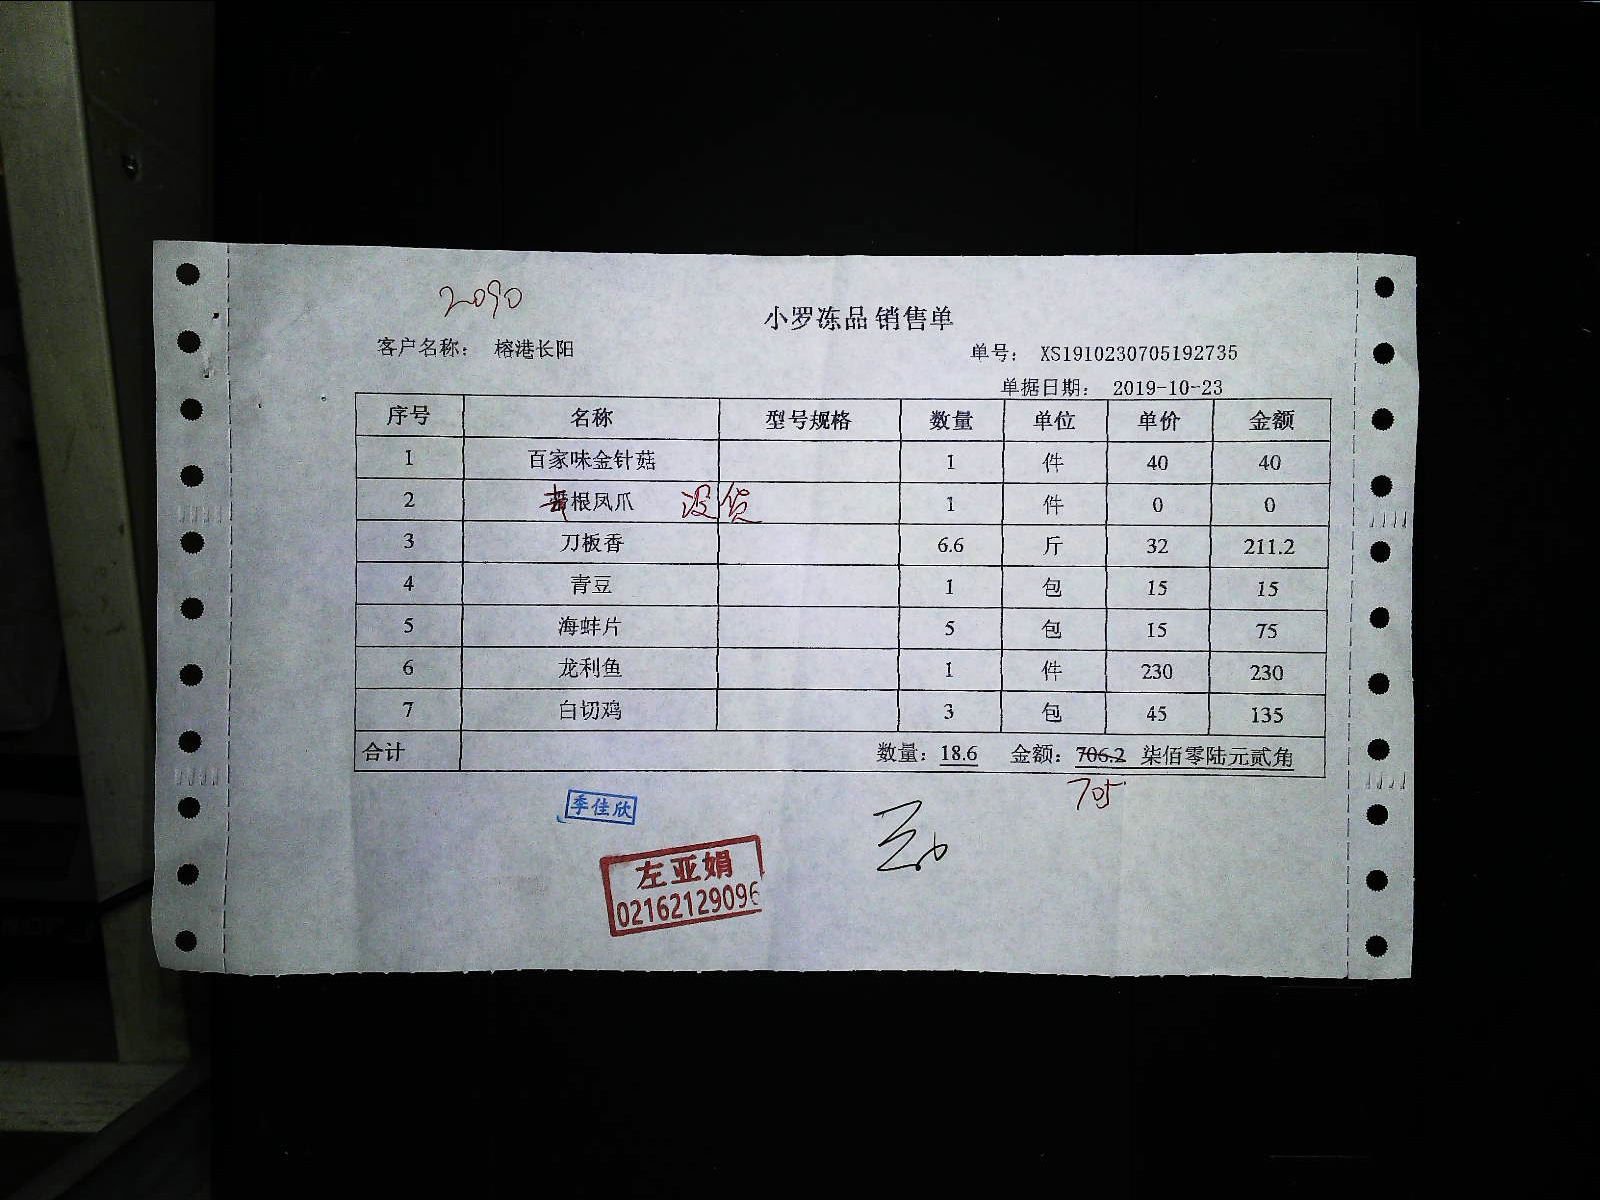 2090
小罗冻品 销售单
客户名称： 榕港长阳
单号： XS1910230705192735
单据日期： 2019-10-23
序号 名称 型号规格 数量 单位 单价 金额
1 百家味金针菇 1 件 40 40
2 根凤爪 没货 1 件 0 0
3 刀板香 6.6 斤 32 211.2
4 青豆 1 包 15 15
5 海蚌片 5 包 15 75
6 龙利鱼 1 件 230 230
7 白切鸡 3 包 45 135
合计 数量：18.6 金额：706.2 柒佰零陆元贰角
705
季佳欣
左亚娟
02162129096